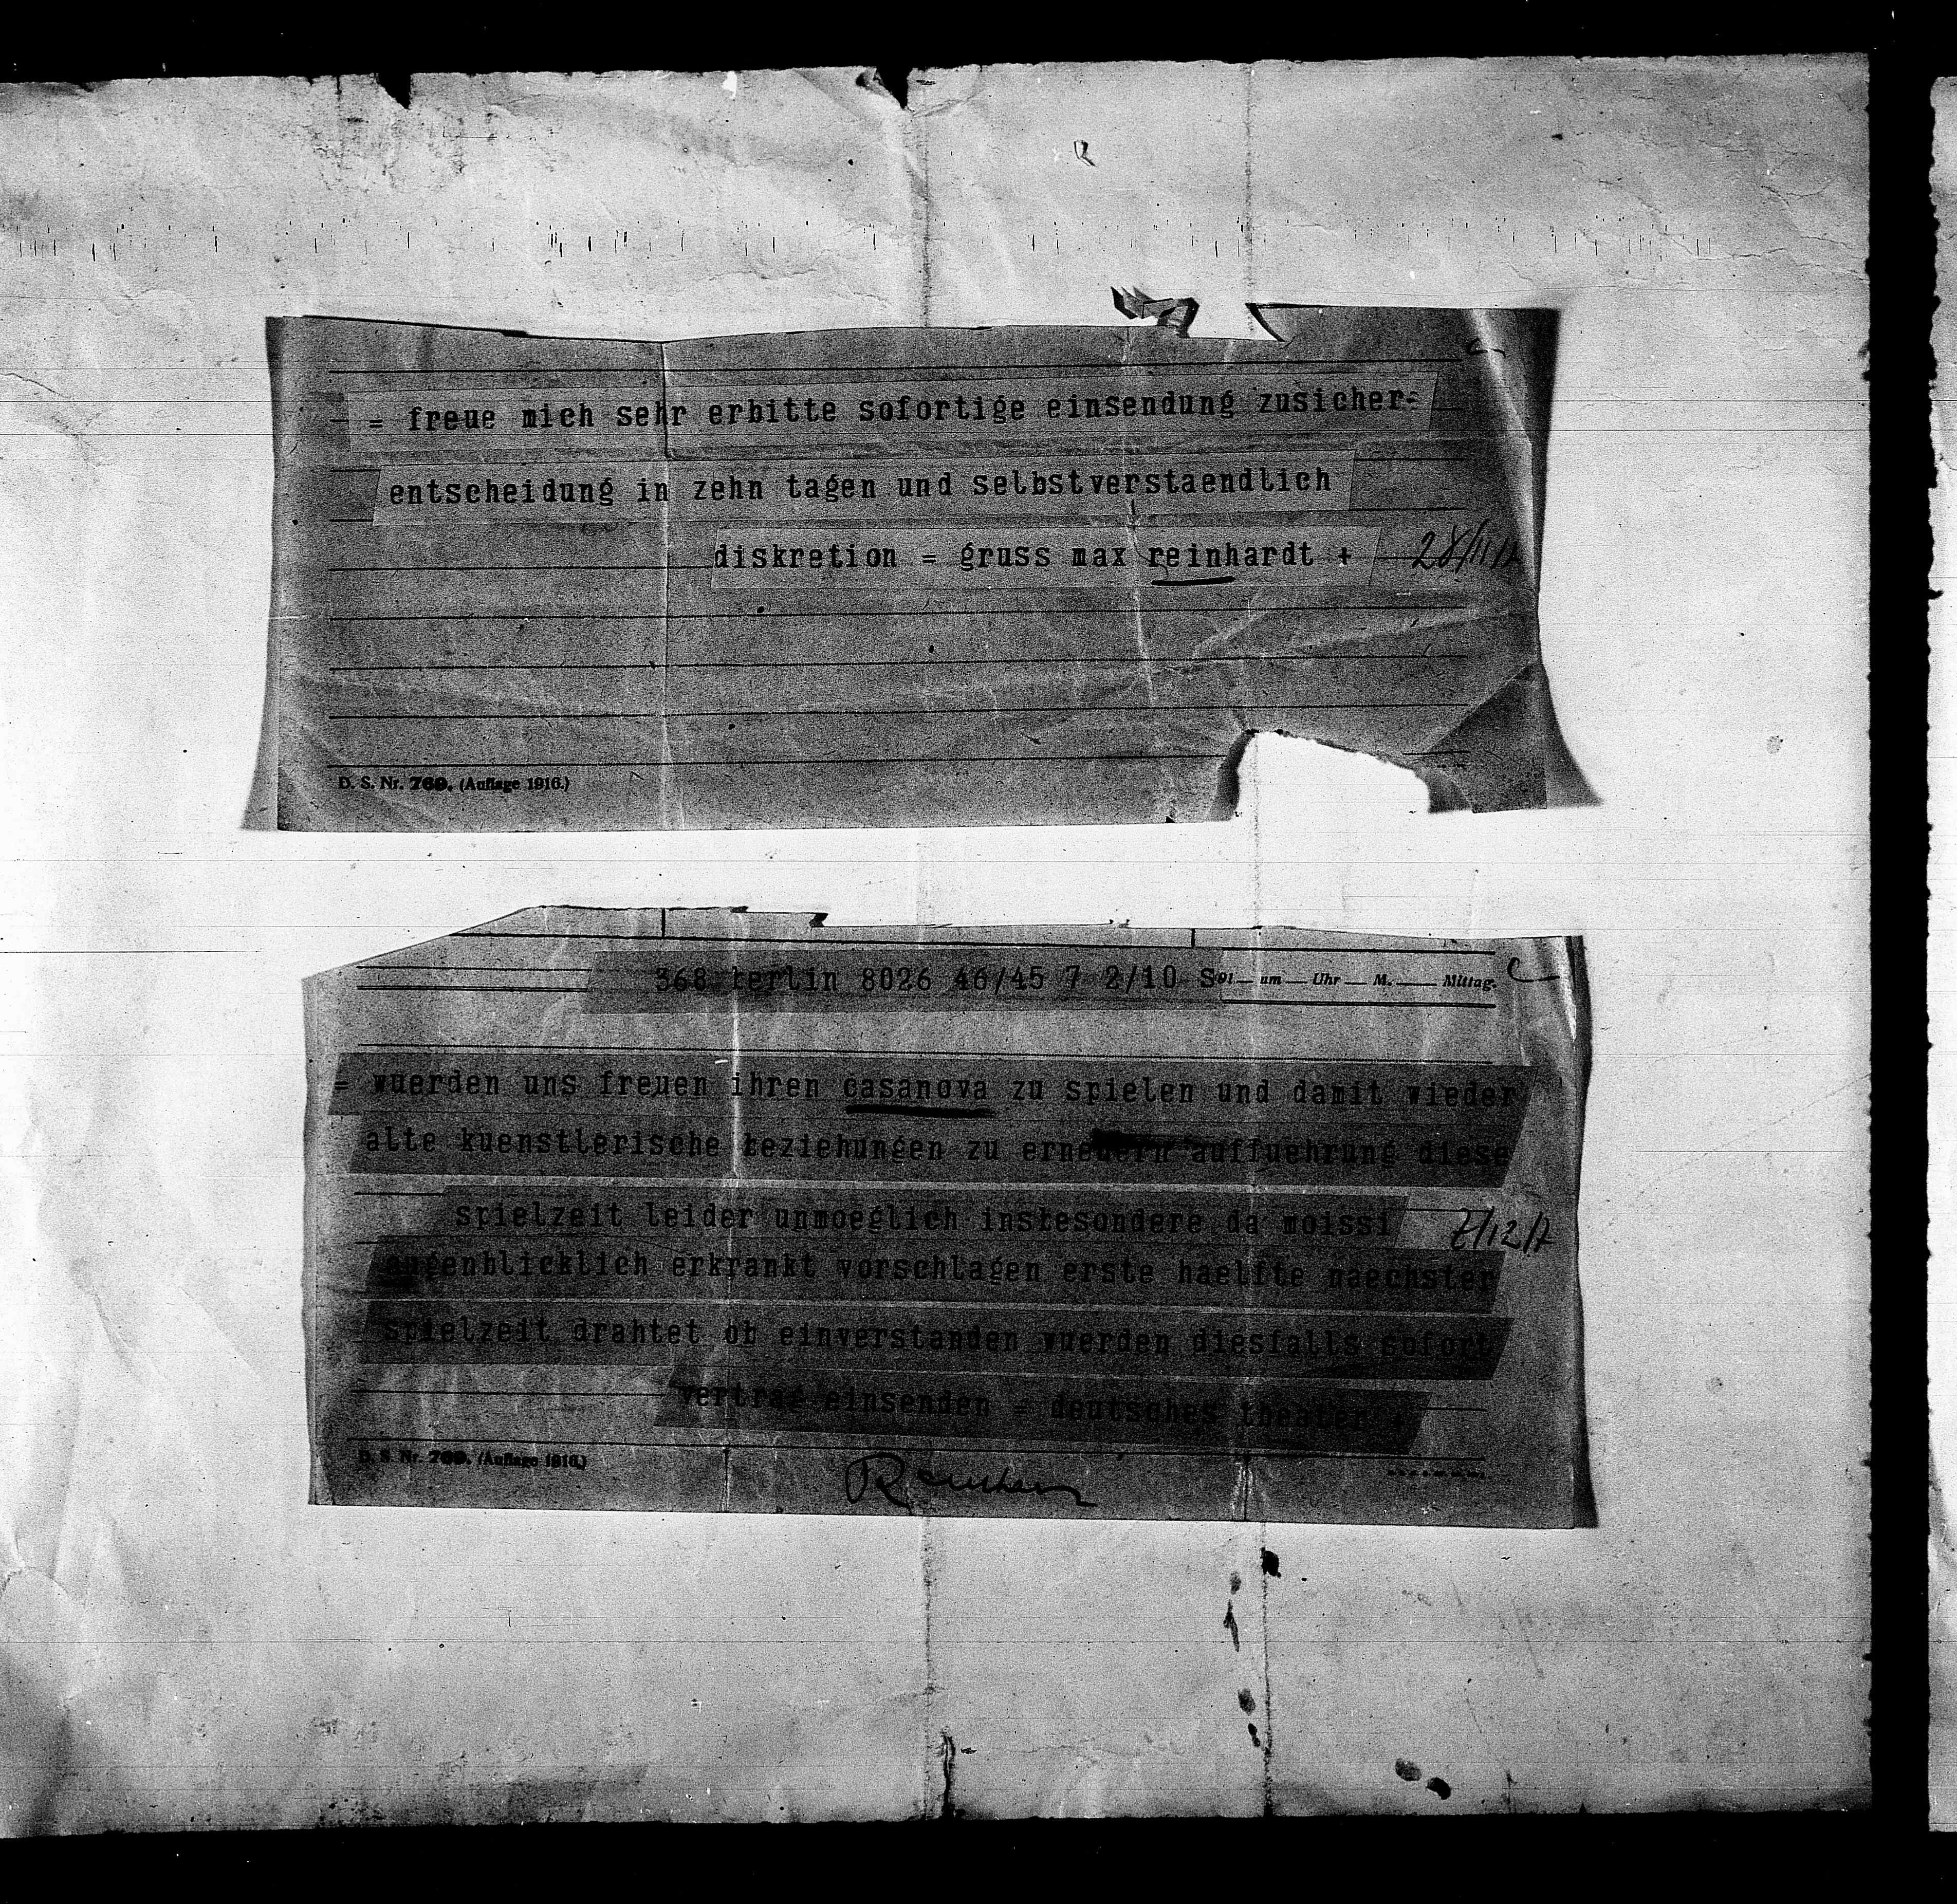 = freue mich sehr erbitte sofortige einsendung zusicher=
entscheidung in zehn tagen und selbstverstaendlich
diskretion = gruss max reinhardt + 28/11/17
D. S. Nr. 769. (Auflage 1916.)
368 berlin 8026 46/45 7 2/10 S um Uhr M. Mittag.
= wuerden uns freuen ihren casanova zu spielen und damit wieder
alte kuenstlerische beziehungen zu erneuern auffuehrung diese
spielzeit leider unmoeglich insbesondere da moissi 7/12/17
augenblicklich erkrankt vorschlagen erste haelfte naechster
spielzeit drahtet ob einverstanden wuerden diesfalls sofort
vertrag einsenden = deutsches theater +
D. S. Nr. 769. (Auflage 1916.)